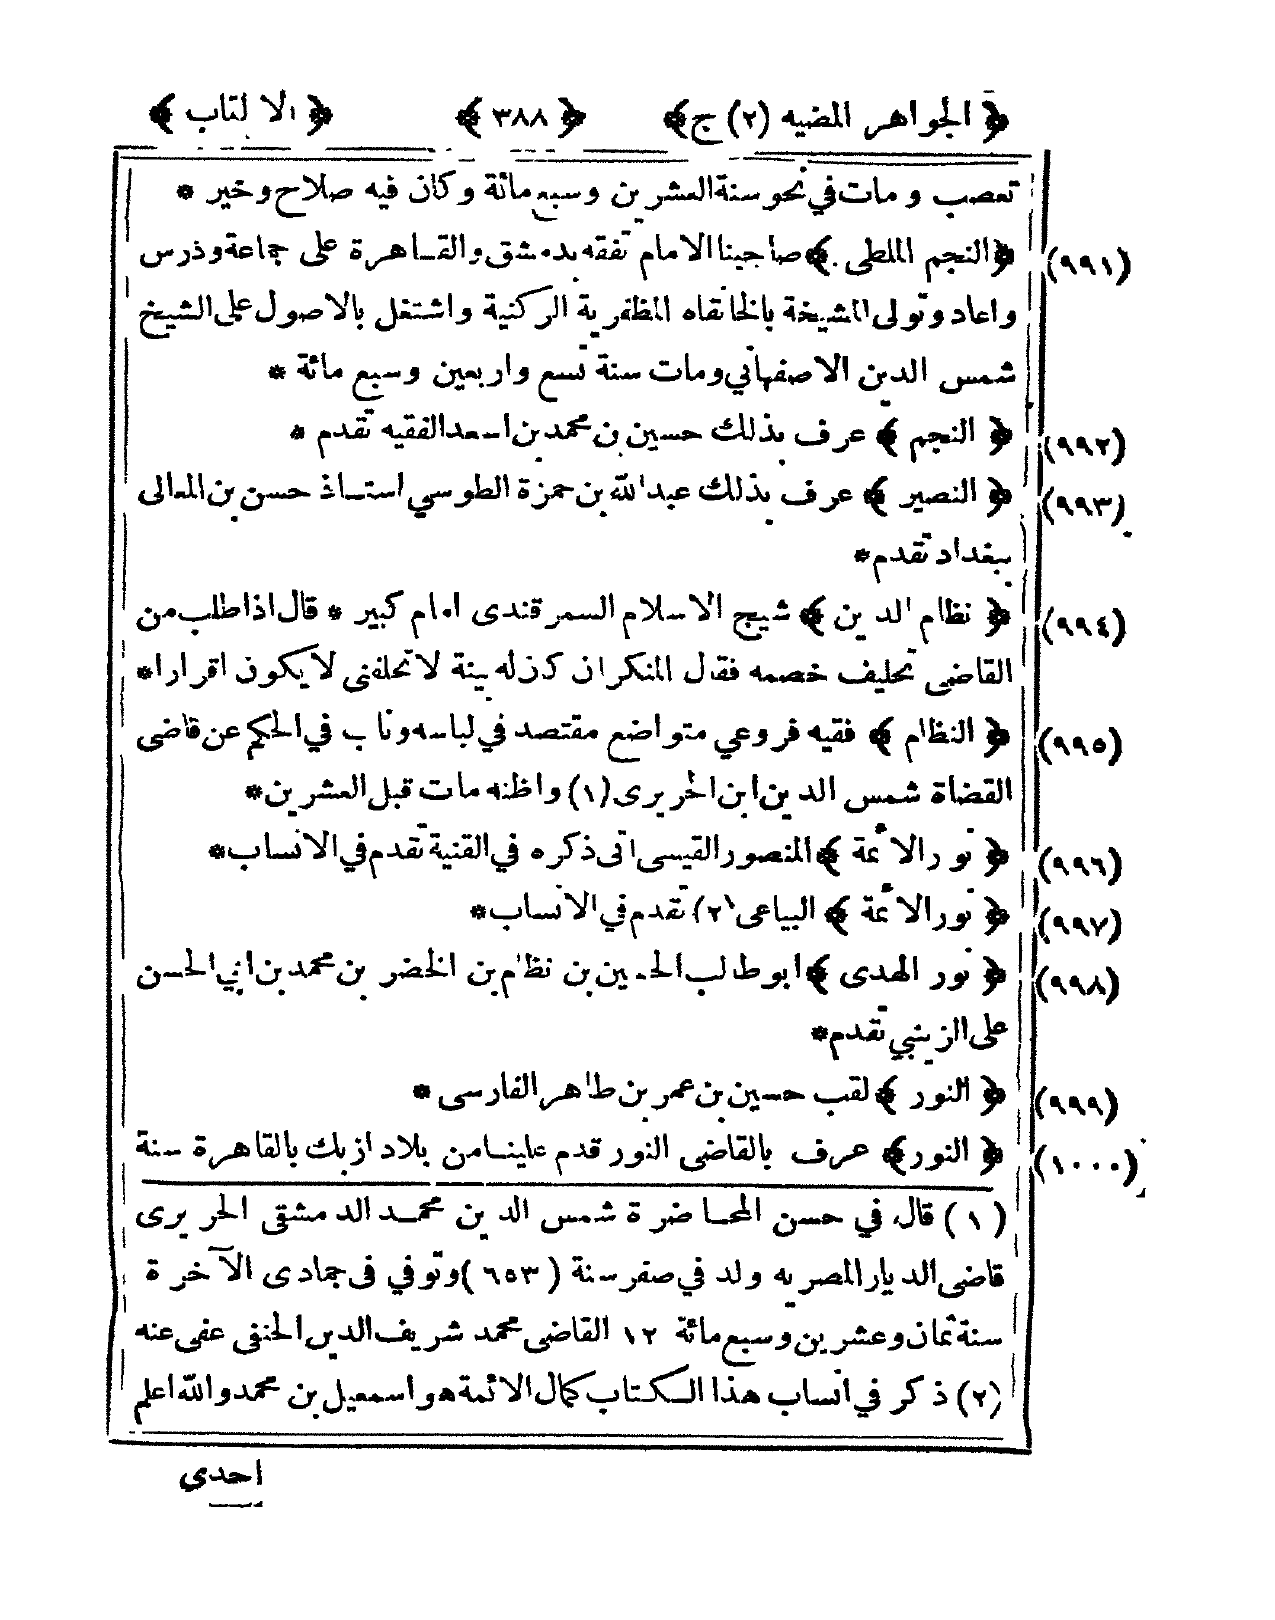 ﴿ الجواهر المضيه (٢) ج﴾ ﴿ ٣٨٨ ﴾ ﴿ الالقاب ﴾
تعصب ومات في نحو سنة العشرين وسبع مائة وكان فيه صلاح وخير *
(٩٩١) ﴿النجم الملطى ﴾ صاحبنا الامام تفقه بدمشق والقاهرة على جماعة ودرس
واعاد وتولى المشيخة بالخانقاه المظفرية الركنية واشتغل بالاصول على الشيخ
شمس الدين الاصفهاني ومات سنة تسع واربعين وسبع مائة *
(٩٩٢) ﴿ النجم ﴾ عرف بذلك حسين بن محمد بن اسعد الفقيه تقدم *
(٩٩٣) ﴿ النصير ﴾ عرف بذلك عبد الله بن حمزة الطوسي استاذ حسن بن المعالى
ببغداد تقدم*
(٩٩٤) ﴿ نظام الدين ﴾ شيخ الاسلام السمرقندى امام كبير * قال اذا طلب من
القاضى تحليف خصمه فقال المنكر ان كان له بينة لا تحلفنى لا يكون اقرارا*
(٩٩٥) ﴿ النظام ﴾ فقيه فروعي متواضع مقتصد في لباسه وناب في الحكم عن قاضى
القضاة شمس الدين ابن الحريرى (١) واظنه مات قبل العشرين*
(٩٩٦) ﴿ نور الائمة ﴾ المنصور القيسى اتى ذكره في القنية تقدم في الانساب*
(٩٩٧) ﴿ نور الائمة ﴾ البياعى (٢) تقدم في الانساب*
(٩٩٨) ﴿ نور الهدى ﴾ ابو طالب الحسين بن نظام بن الخضر بن محمد بن ابي الحسن
على الزينبي تقدم*
(٩٩٩) ﴿ النور ﴾ لقب حسين بن عمر بن طاهر الفارسى *
(١٠٠٠) ﴿ النور ﴾ عرف بالقاضى النور قدم علينا من بلاد ازبك بالقاهرة سنة
(١) قال في حسن المحاضرة شمس الدين محمد الدمشقى الحريرى
قاضى الديار المصريه ولد في صفر سنة (٦٥٣) وتوفي فى جمادى الآخرة
سنة ثمان وعشرين وسبع مائة ١٢ القاضى محمد شريف الدين الحنفى عفى عنه
(٢) ذكر في انساب هذا الكتاب كمال الائمة هو اسمعيل بن محمد والله اعلم
احدى